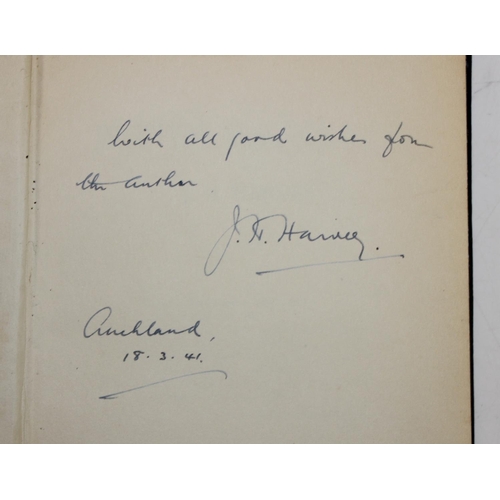 With all good wishes from
the author.
J. H. Harvey.
Auckland,
18.3.41.